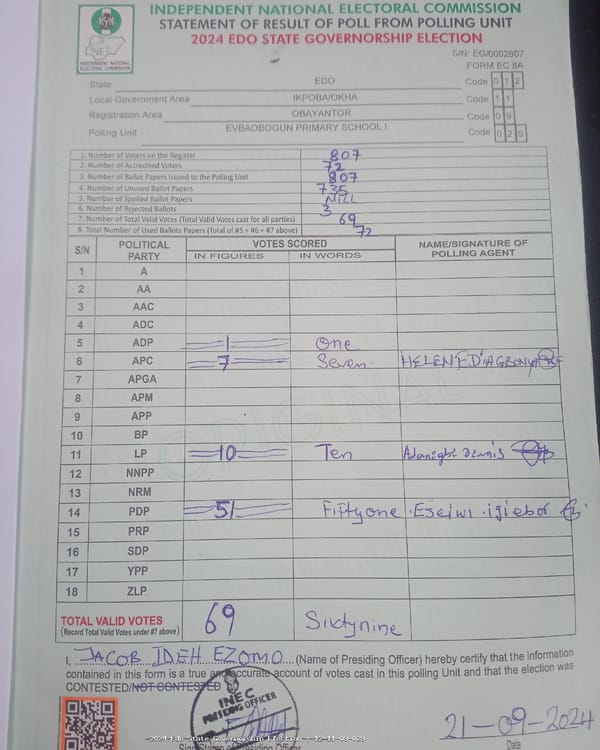 INDEPENDENT NATIONAL ELECTORAL COMMISSION
STATEMENT OF RESULT OF POLL FROM POLLING UNIT
2024 EDO STATE GOVERNORSHIP ELECTION
INEC
INDEPENDENT NATIONAL
ELECTORAL COMMISSION
S/N: EG/0002607
FORM EC 8A
State EDO Code 0 1 2
Local Government Area IKPOBA/OKHA Code 1 1
Registration Area OBAYANTOR Code 0 9
Polling Unit EVBAOBOGUN PRIMARY SCHOOL I Code 0 2 9
1. Number of Voters on the Register 807
2. Number of Accredited Voters 72
3. Number of Ballot Papers Issued to the Polling Unit 807
4. Number of Unused Ballot Papers 735
5. Number of Spoiled Ballot Papers NILL
6. Number of Rejected Ballots 3
7. Number of Total Valid Votes (Total Valid Votes cast for all parties) 69
8. Total Number of Used Ballots Papers (Total of #5 + #6 + #7 above) 72
S/N POLITICAL PARTY VOTES SCORED NAME/SIGNATURE OF POLLING AGENT
IN FIGURES IN WORDS
1 A
2 AA
3 AAC
4 ADC
5 ADP 1 One
6 APC 7 Seven HELEN
7 APGA
8 APM
9 APP
10 BP
11 LP 10 Ten Dennis
12 NNPP
13 NRM
14 PDP 51 Fifty one Eseiwi igiebor
15 PRP
16 SDP
17 YPP
18 ZLP
ORIGINAL
TOTAL VALID VOTES 69 Sixtynine
(Record Total Valid Votes under #7 above)
I, JACOB IDEH EZOMO (Name of Presiding Officer) hereby certify that the information
contained in this form is a true and accurate account of votes cast in this polling Unit and that the election was
CONTESTED/NOT CONTESTED
INEC
PRESIDING OFFICER
21-09-2024
Date